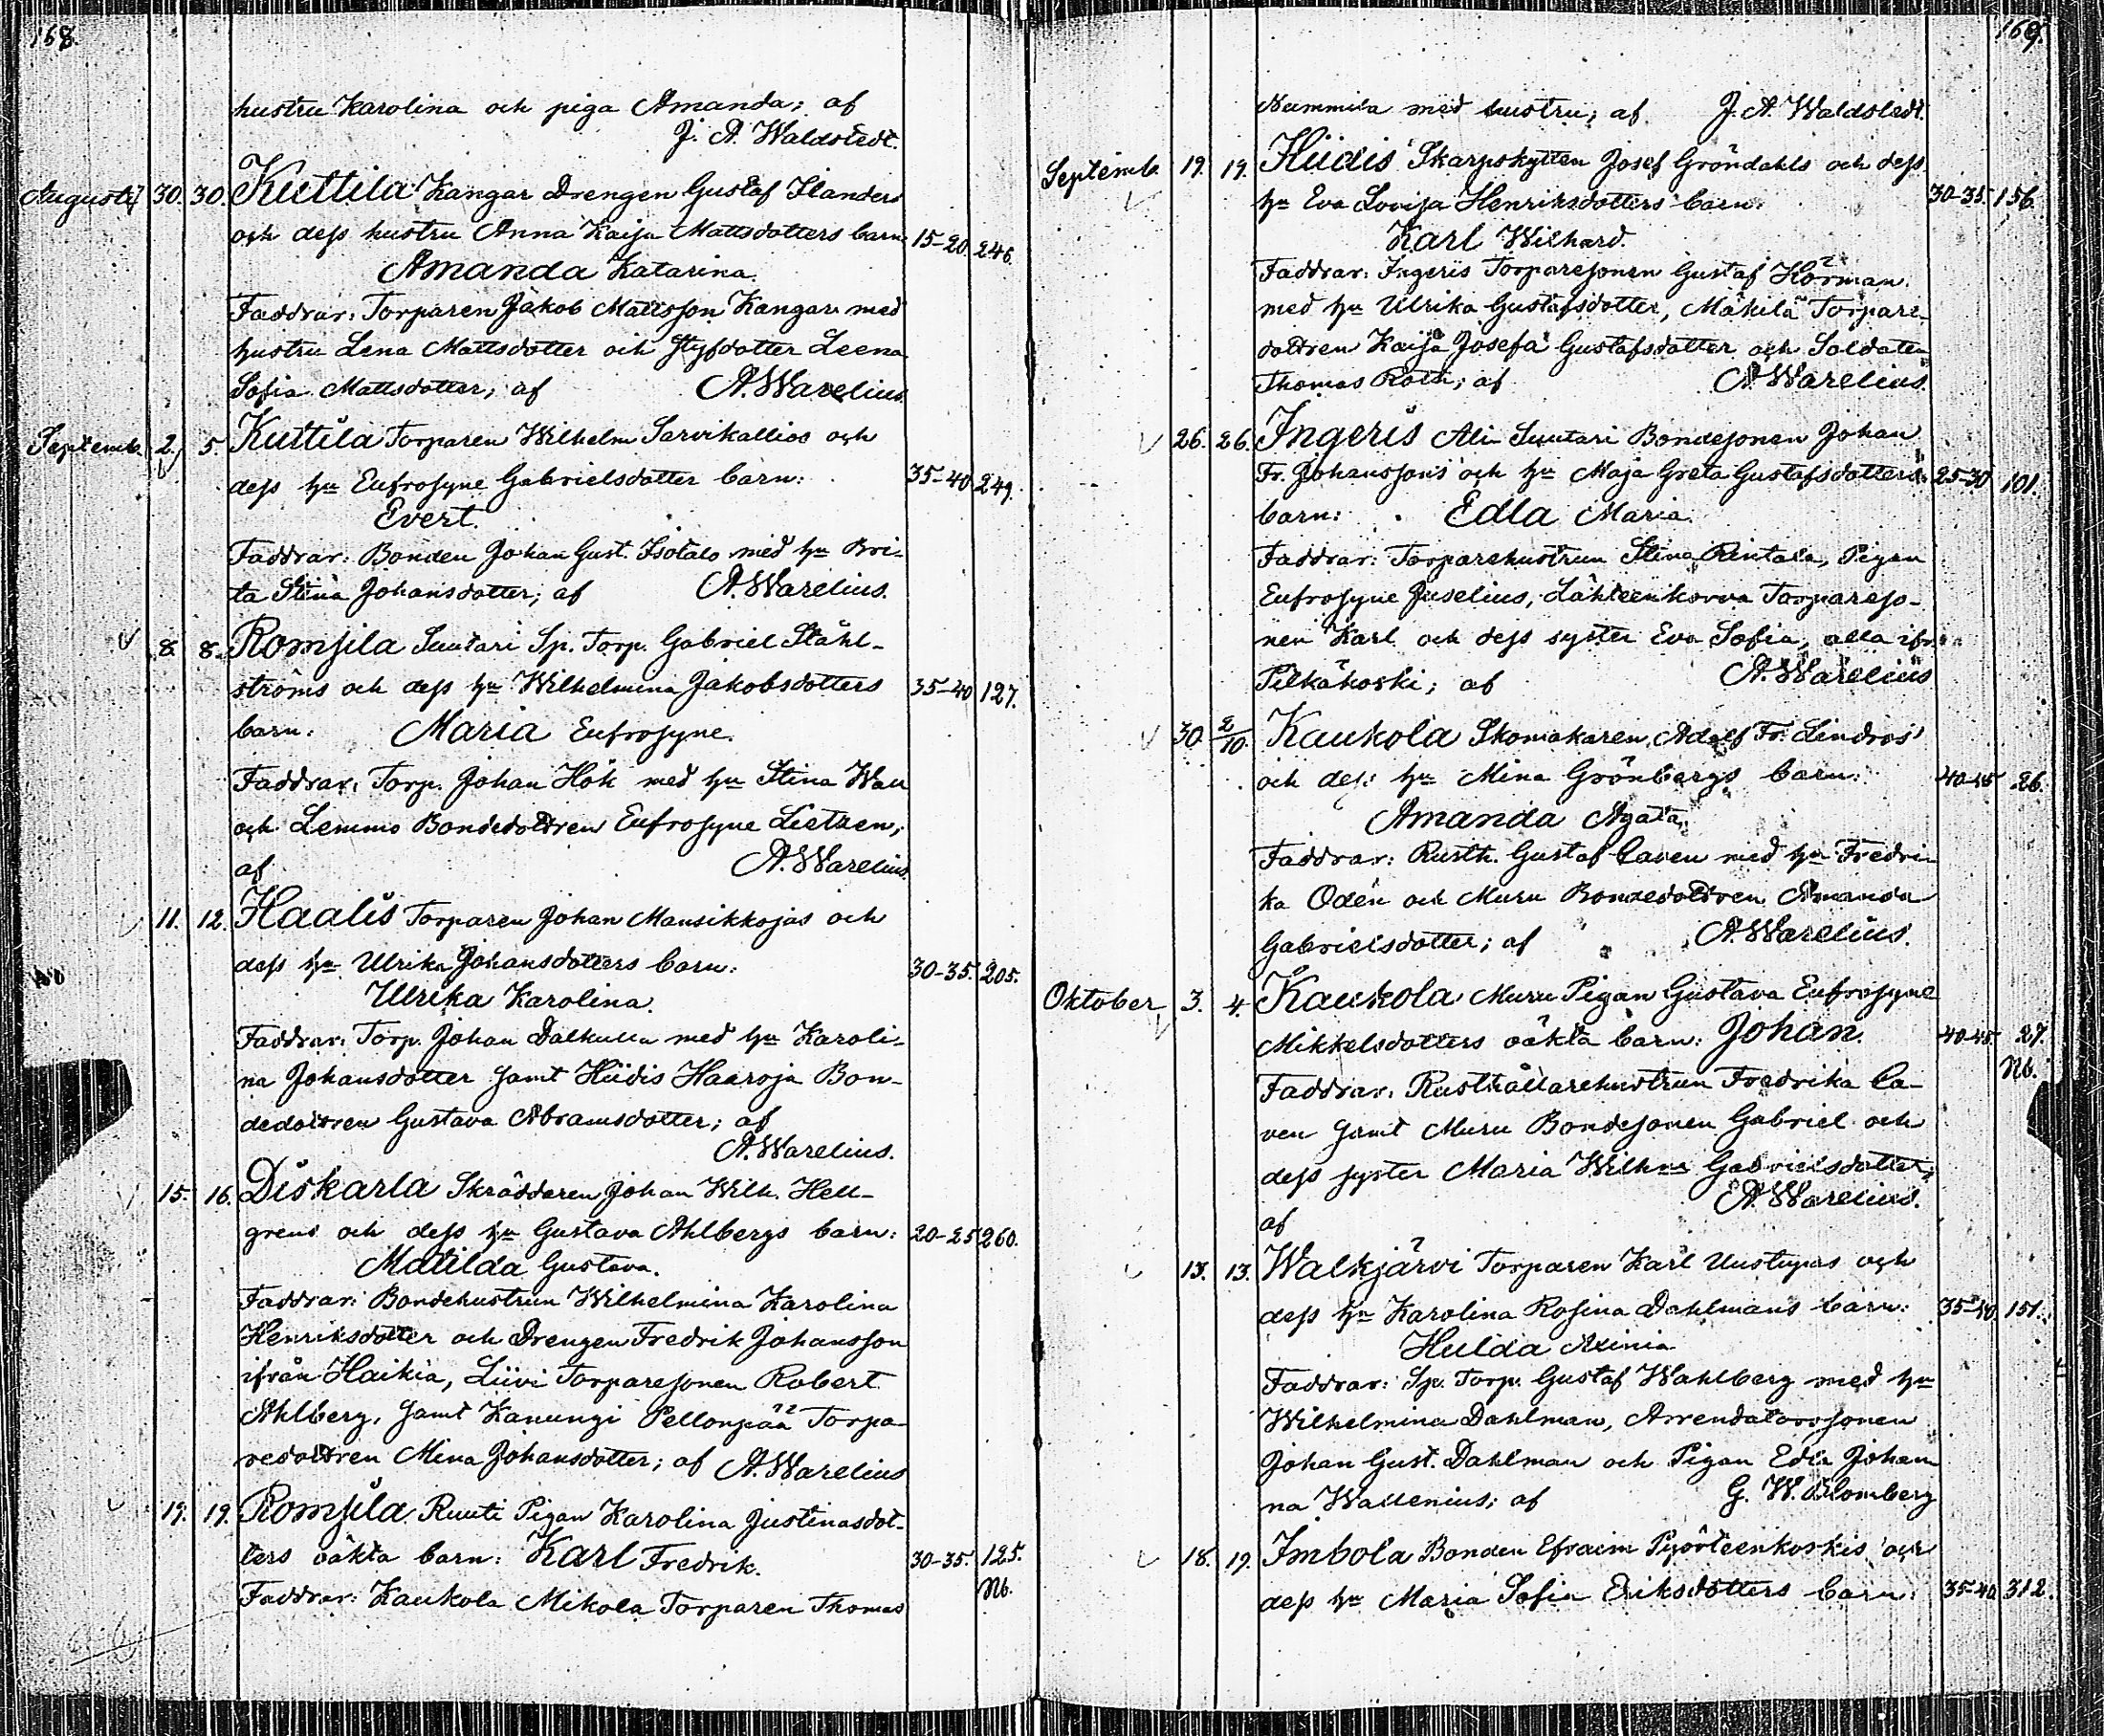 168.
hustru Karolina och piga Amanda; af
J. A. Waldstedt.
Augusti 30. 30. Kuttila Kangar Drengen Gustaf Flanders
och dess hustru Anna Kaija Mattsdotters barn: 15-20. 246.
Amanda Katarina.
Faddrar: Torparen Jakob Mattsson Kangar med
hustru Lena Mattsdotter och styfdotter Leena
Sofia Mattsdotter; af A. Warelius.
Septemb. 2. 5. Kuttila Torparen Wilhelm Sarvikallios och
dess hu Eufrosyne Gabrielsdotter barn: 35-40 249.
Evert.
Faddrar: Bonden Johan Gust. Isotalo med hu Bri-
ta Stina Johansdotter; af A. Warelius.
8. 8. Romsila Suutari Sp. Torp. Gabriel Ståhl-
ströms och dess hu Wilhelmina Jakobsdotters 35-40 127.
barn: Maria Eufrosyne.
Faddrar: Torp. Johan Hök med hu Stina Wall
och Lemmo Bondedottren Eufrosyne Lietzen;
af A. Warelius.
11. 12. Haalis Torparen Johan Mansikkojas och
dess hu Ulrika Johansdotters barn: 30-35. 205.
Ulrika Karolina.
Faddrar: Torp. Johan Dalkulla med hu Karoli-
na Johansdotter samt Hiidis Haaroja Bon-
dedottren Gustava Abramsdotter; af
A. Warelius.
15. 16. Diskarla Skräddaren Johan Wilh. Hell-
grens och dess hu Gustava Ahlbergs barn: 20-25 260.
Matilda Gustava.
Faddrar: Bondehustrun Wilhelmina Karolina
Henriksdotter och Drengen Fredrik Johansson
ifrån Haikia, Liivi Torparesonen Robert
Ahlberg, samt Kanungi Pellonpää Torpa-
redottren Mina Johansdotter; af A. Warelius
19. 19. Romsila Ruuti Pigan Karolina Justinasdot-
ters oäkta barn: Karl Fredrik. 30-35. 125.
Nb.
Faddrar: Kaukola Mikola Torparen Thomas
169.
Nummila med hustru; af J. A. Waldstedt.
Septemb. 19. 19. Hiidis Skarpskytten Josef Gröndahls och dess
hu Eva Lovisa Henriksdotters barn: 30-35. 156.
Karl Wilhard.
Faddrar: Ingeris Torparesonen Gustaf Hörman
med hu Ulrika Gustafsdotter, Mäkilä Torpare-
dottren Kaija Josefa Gustafsdotter och Soldaten
Thomas Roth; af A. Warelius.
26. 26. Ingeris Ali Suutari Bondesonen Johan
Fr. Johanssons och hu Maja Greta Gustafsdotters 25-30 101.
barn: Edla Maria.
Faddrar: Torparehustrun Stina Rintala, Pigan
Eufrosyne Juselius, Lähteenkorva Torpareso-
nen Karl och dess syster Eva Sofia, alla ifrån
Pitkäkoski; af A. Warelius
30. 2/10. Kaukola Skomakaren Adolf Fr. Lindros
och dess hu Mina Grönbergs barn: 40-45 26.
Amanda Agata.
Faddrar: Rusth. Gustaf Caven med hu Fredri-
ka Odén och Muru Bondedottren Amanda
Gabrielsdotter; af A. Warelius.
Oktober 3. 4. Kaukola Muru Pigan Gustava Eufrosyne
Mikkelsdotters oäkta barn: Johan. 40-45. 27.
Nb.
Faddrar: Rusthållarehustrun Fredrika Ca-
ven samt Muru Bondesonen Gabriel och
dess syster Maria Wilhna Gabrielsdotter;
af A. Warelius.
13. 13. Walkjärvi Torparen Karl Uustupas och
dess hu Karolina Rosina Dahlmans barn: 35-40. 151.
Hulda Axinia
Faddrar: Sp. Torp. Gustaf Wahlberg med hu
Wilhelmina Dahlman, Arrendatorssonen
Johan Gust. Dahlman och Pigan Edla Johan-
na Wallenius; af G. W. Blomberg
18. 19. Imbola Bonden Efraim Pyörteenkoskis och
dess hu Maria Sofia Eriksdotters barn: 35-40. 312.